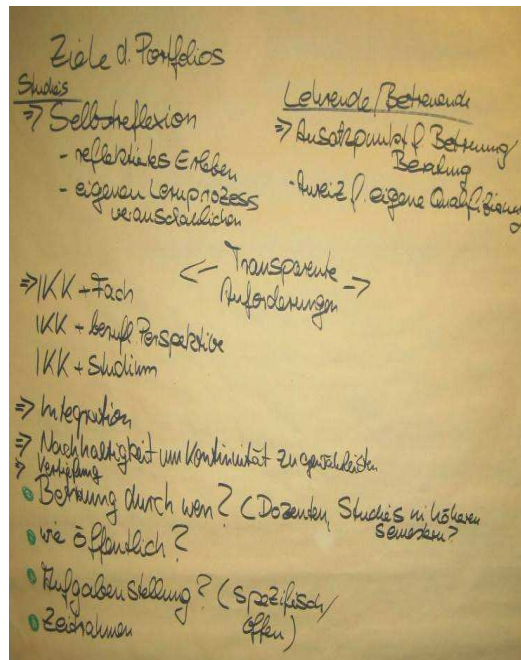 Ziele d. Portfolios
Studies
=> Selbstreflexion
- reflektiertes Erleben
- eigenen Lernprozess
veranschaulichen
Lehrende/Betreuende
=> Ansatzpunkt f. Betreuung/
Beratung
- Anreiz f. eigene Qualifizierung
<- Transparente ->
Anforderungen
=> IKK + Fach
IKK + berufl Perspektive
IKK + Studium
=> Integration
=> Nachhaltigkeit um Kontinuität zu gewährleisten
=> Vertiefung
• Betreuung durch wen? (Dozenten, Studies in höheren
Semestern?
• wie öffentlich?
• Aufgabenstellung? (spezifisch/
offen)
• Zeitrahmen